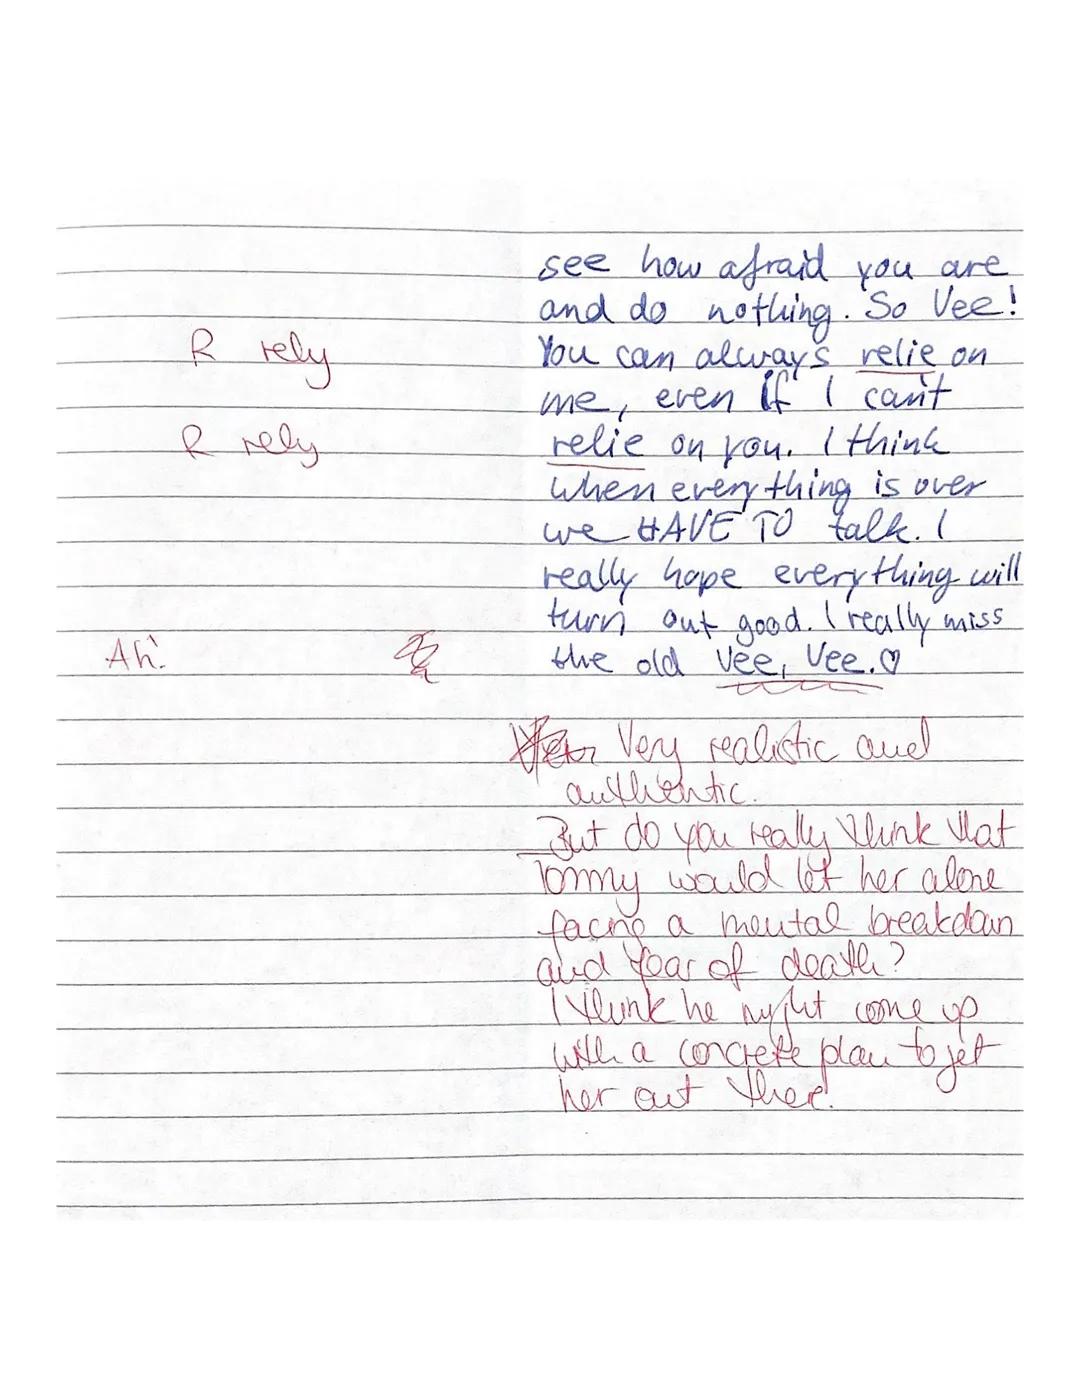 see how afraid you are
and do nothing. So Vee!
R rely
You can always relie on
me, even if I can't
R rely
relie on you. I think
when everything is over
we HAVE TO talk. I
really hope everything will
turn out good. I really miss
Ah!
the old Vee, Vee.♡
Very realistic and
authentic.
But do you really think that
Tommy would let her alone
facing a mental breakdown
and fear of death?
I think he might come up
with a concrete plan to get
her out there!